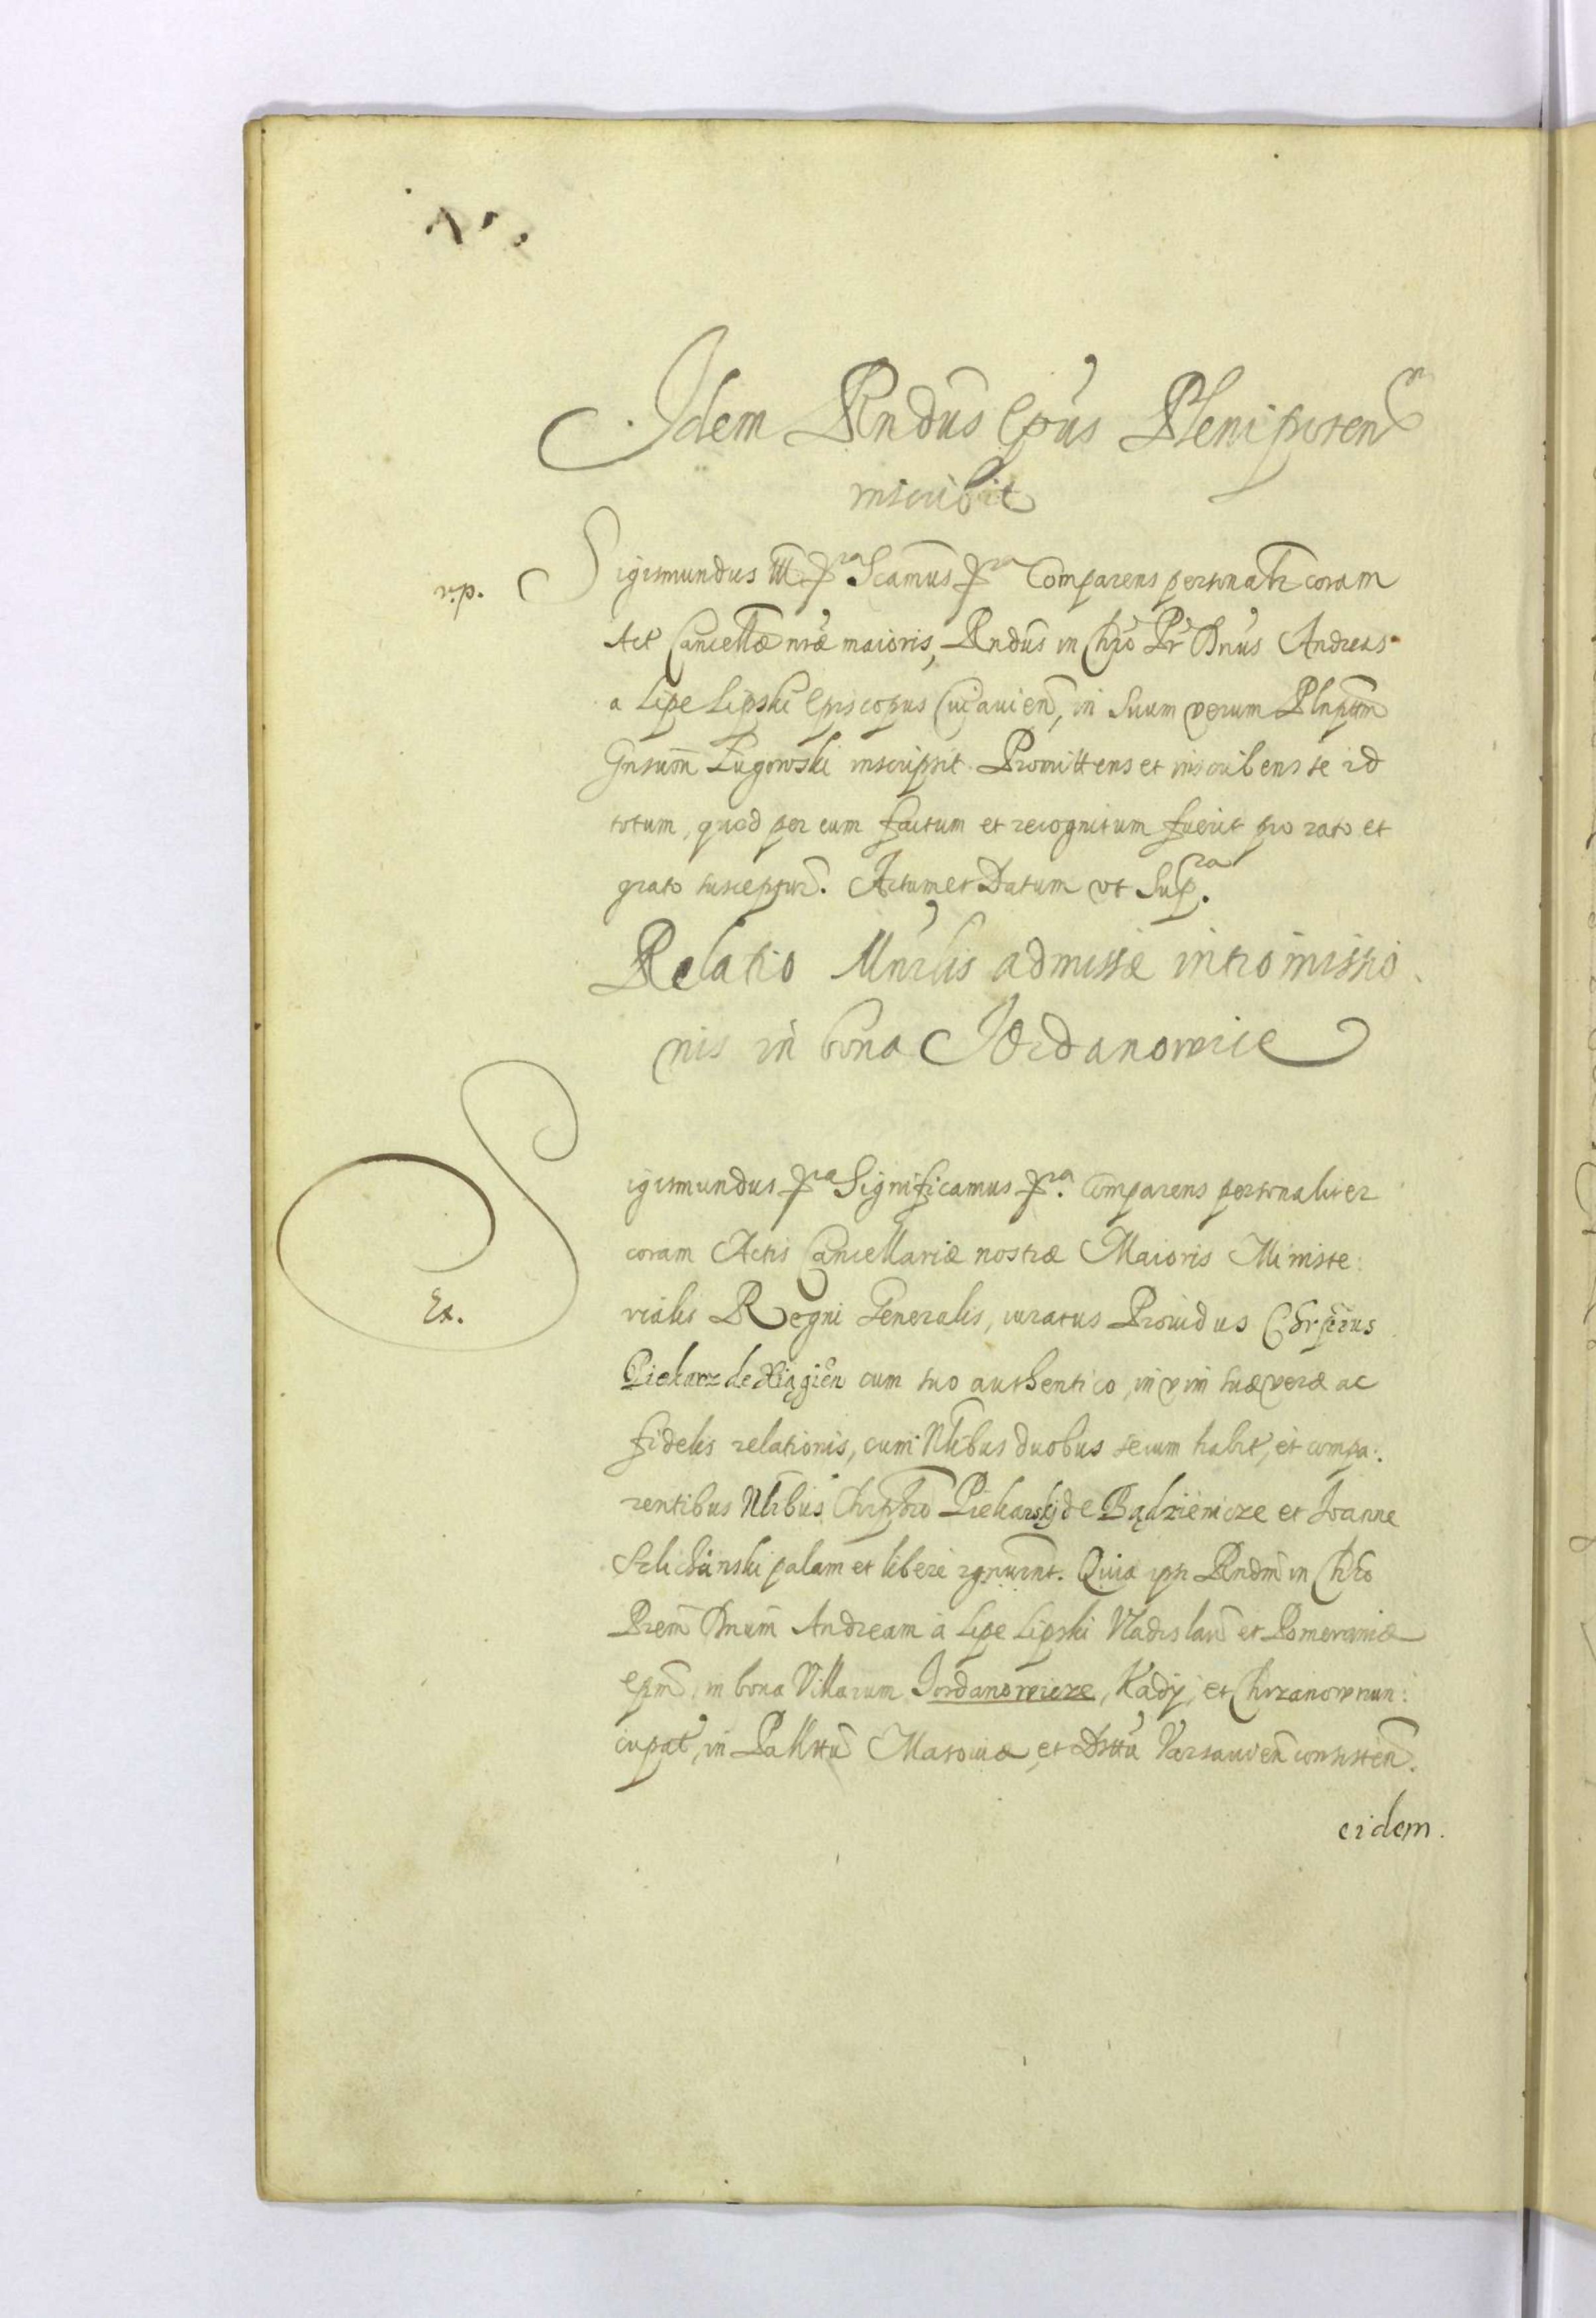 Idem Rndus Epus Plenipoten
inscribit
v.p. Sigismundus III pra Scamus pra Comparens personalr coram
Act Cancellæ nræ maioris, Rndus in Chro Pr Dnus Andreas
a Lipe Lipski Episcopus Cujauien, in Suum verum Plnptm
Gnsum Ługowski inscripsit. Promittens et inscribens se id
totum, quod per eum factum et recognitum fuerit pro rato et
grato suscepturu. Actum et Datum vt Supra.
Relatio Mnrlis admissæ intromissio
nis in bona Jordanowice
Sigismundus pra Significamus pra. Comparens personaliter
coram Actis Cancellariæ nostræ Maioris Ministe:
Ex. rialis Regni Generalis, iuratus Prouidus
Piekarz de cum suo authentico, in vim suæ veræ ac
fidelis relationis, cum Nlibus duobus secum habit, et compa:
rentibus Nlibus Piekarskj de Bądzienicze et Joanne
palam et libere rgnuernt. Quia ipse Rndm in Chro
Prem Dnum Andream à Lipe Lipski Vladislau et Pomeraniæ
epm, in bona Villarum Jordanowicze, Kady, et Chrzanow nun:
cupat, in Pallttu Masouiæ, et Dsttu Varsauien consisten.
eidem.